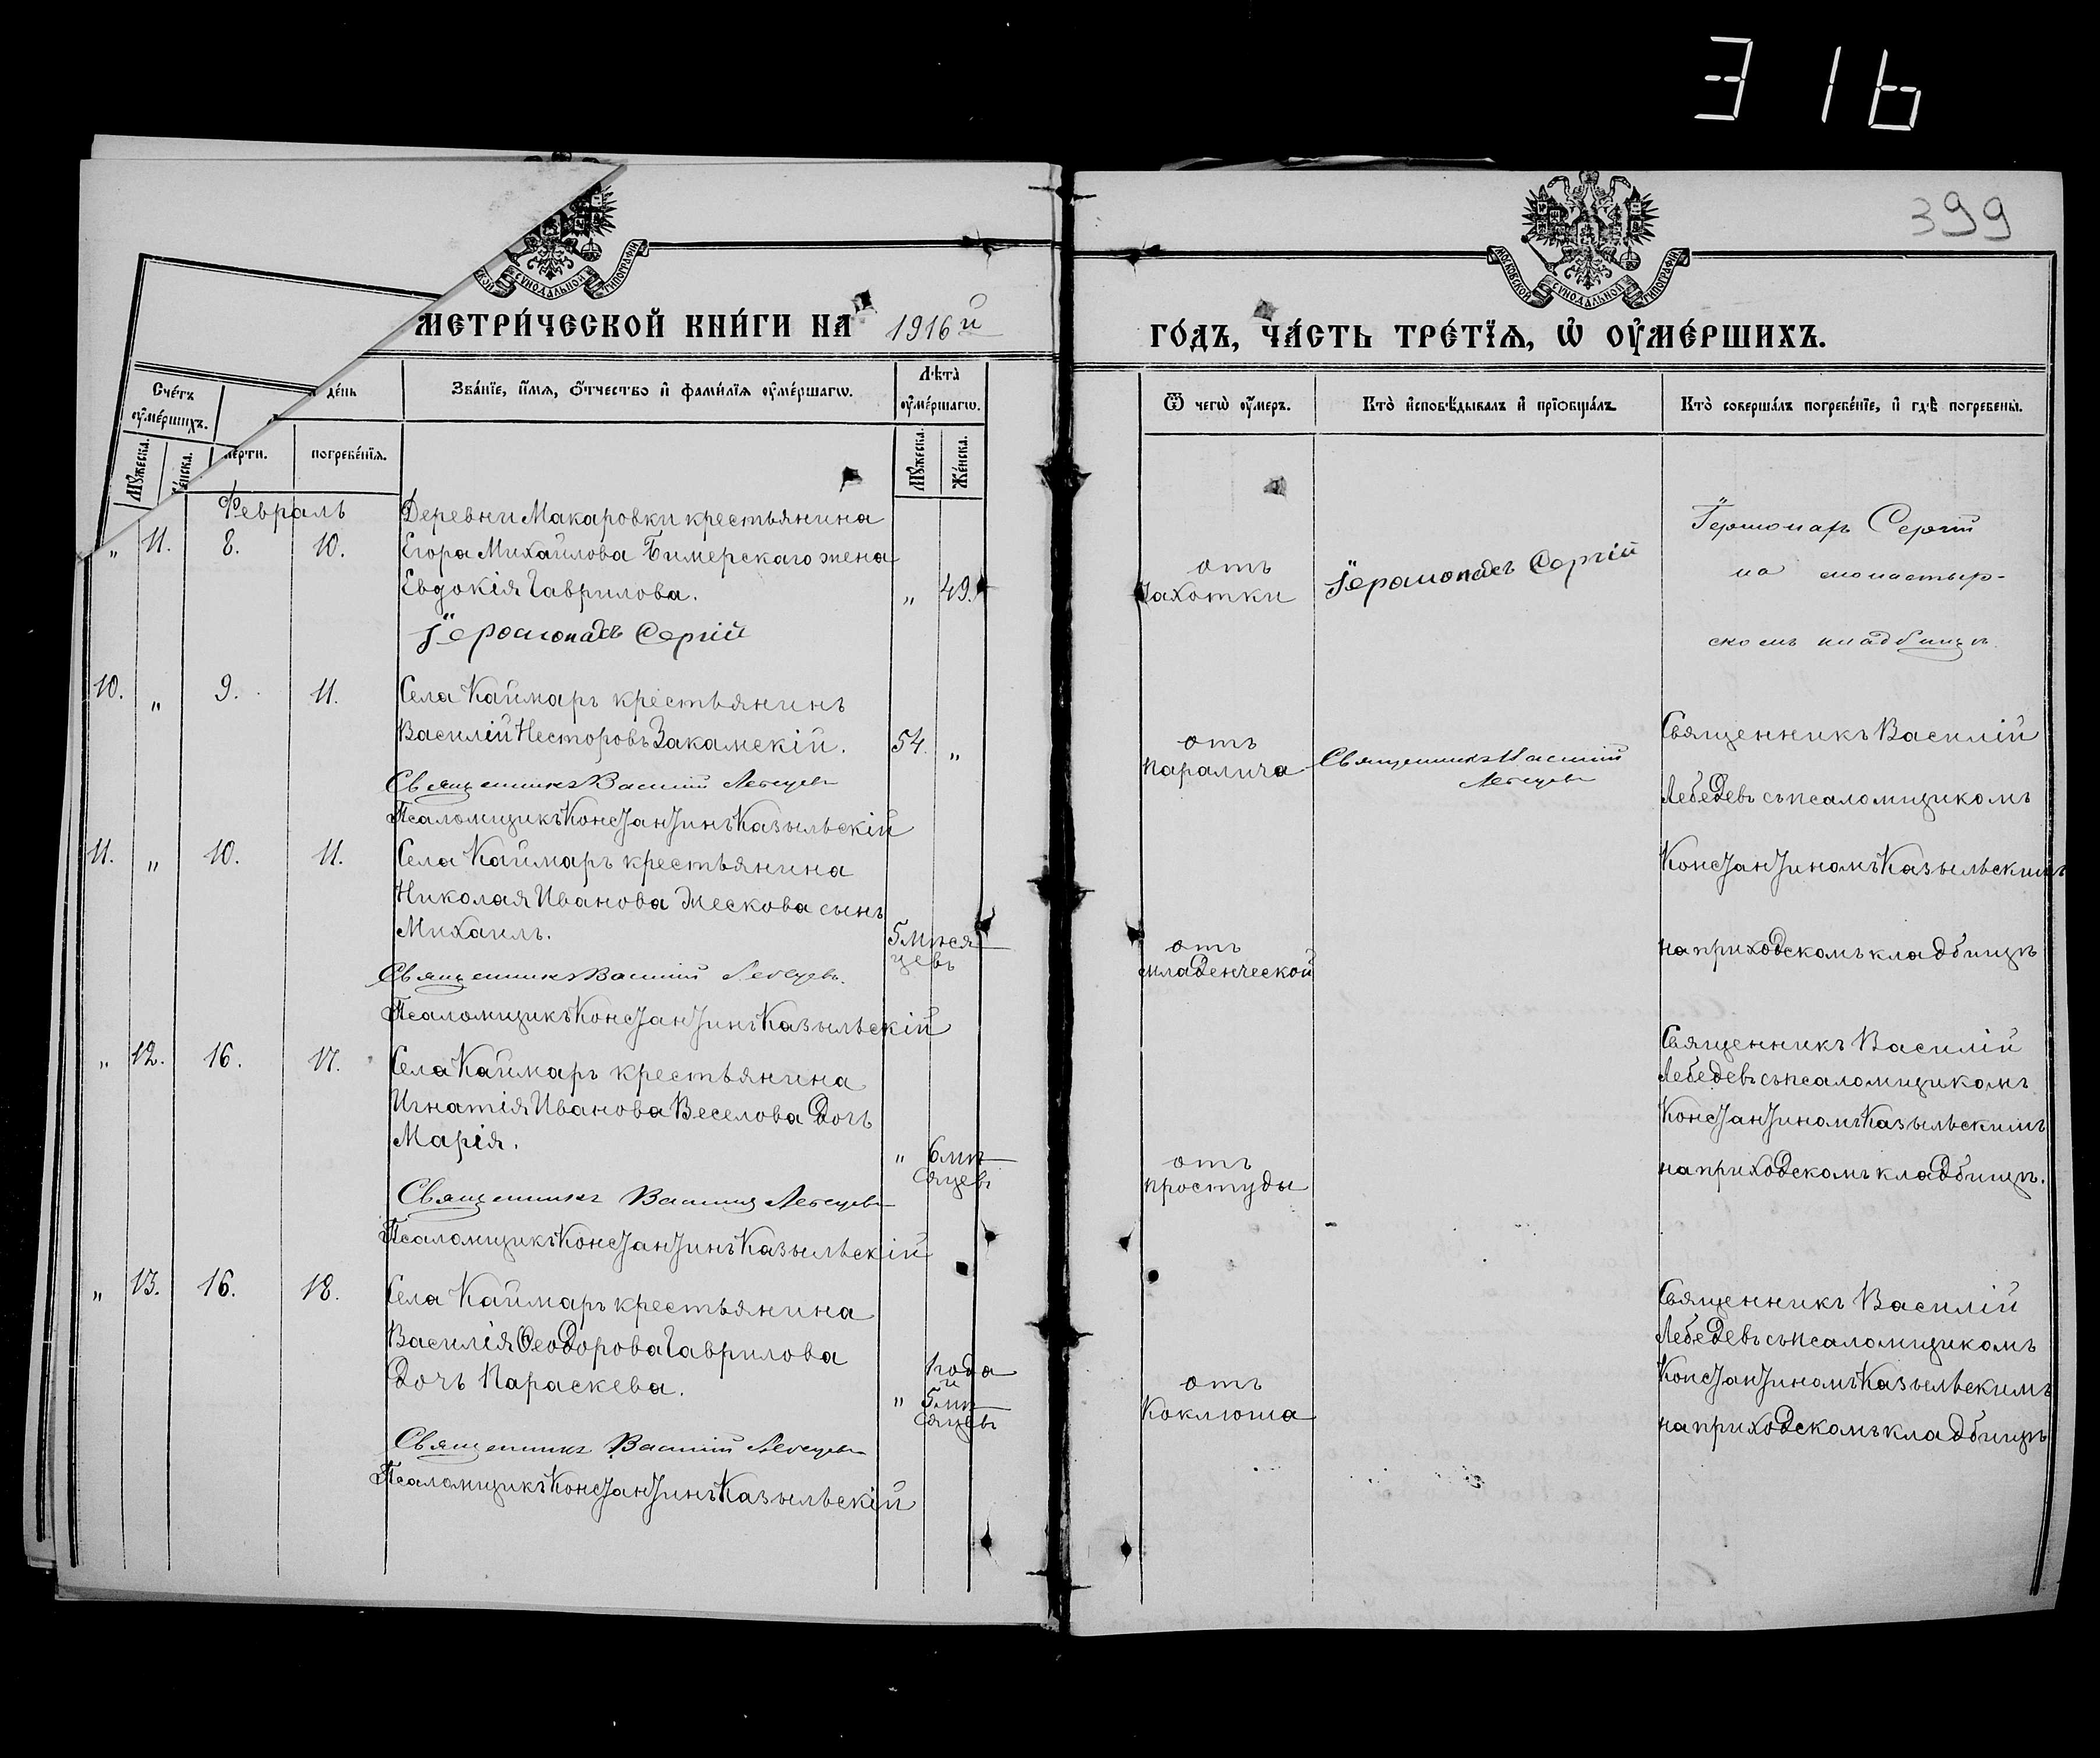 316
399
МОСКОВСКОЙ СУНОДАЛЬНОЙ ТИПОГРАФІИ
МЕТРИ́ЧЕСКОЙ КНИ́ГИ НА 1916й
ГО́ДЪ, ЧА́СТЬ ТРЕ́ТЇѦ, Ѡ҆ ОУ҆МЕ́РШИХЪ.
Сче́тъ оу҆ме́ршихъ.
Мꙋ́жеска.
Же́нска.
де́нь
ме́рти.
погребе́нїѧ.
Зва́нїе, и҆́мѧ, ѻ҆́тчество и҆ фами́лїѧ оу҆ме́ршагѡ.
Лѣта̀ оу҆ме́ршагѡ.
Мꙋ́жеска.
Же́нска.
Ѿ чегѡ̀ оу҆́меръ.
Кто̀ и҆сповѣ́дывалъ и҆ прїѡбща́лъ
Кто̀ соверша́лъ погребе́нїе, и҆ гдѣ̀ погребены̀.
Февраль
" 11. 8. 10.
Деревни Макаровки крестьянина
Егора Михайлова Бимерскаго жена
Евдокія Гаврилова.
" 49.
Іеромонахъ Сергій
отъ
Чахотки
Іеромонахъ Сергій
Іеромонахъ Сергій
на монастыр-
скомъ кладбищѣ
10. " 9. 11.
Села Каймаръ крестьянинъ
Василій Несторовъ Закамскій.
54. "
Священникъ Василій Лебедевъ
Псаломщикъ Константинъ Казыльскій
отъ
паралича
Священникъ Василій
Лебедевъ
Священникъ Василій
Лебедевъ съ псаломщикомъ
Константиномъ Казыльскимъ
на приходскомъ кладбищѣ
11. " 10. 11.
Села Каймаръ крестьянина
Николая Иванова Мескова сынъ
Михаилъ.
5 мѣся
цевъ
Священникъ Василій Лебедевъ.
Псаломщикъ Константинъ Казыльскій
отъ
младенческой
" 12. 16. 17.
Села Каймаръ крестьянина
Игнатія Иванова Веселова дочь
Марія.
" 6 мѣ
сяцевъ
Священникъ Василій Лебедевъ
Псаломщикъ Константинъ Казыльскій
отъ
простуды
Священникъ Василій
Лебедевъ съ псаломщикомъ
Константиномъ Казыльскимъ
на приходскомъ кладбищѣ.
" 13. 16. 18.
Села Каймаръ крестьянина
Василія Ѳеодорова Гаврилова
дочь Параскева.
" 1 года
и
5 мѣ
сяцевъ
Священникъ Василій Лебедевъ
Псаломщикъ Константинъ Казыльскій
отъ
Коклюша
Священникъ Василій
Лебедевъ съ псаломщикомъ
Константиномъ Казыльскимъ
на приходскомъ кладбищѣ